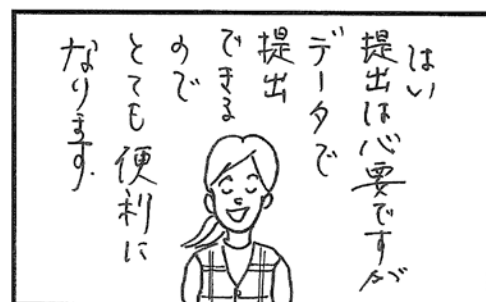 はい
提出は必要ですが
データで
提出
できる
ので
とても便利に
なります.